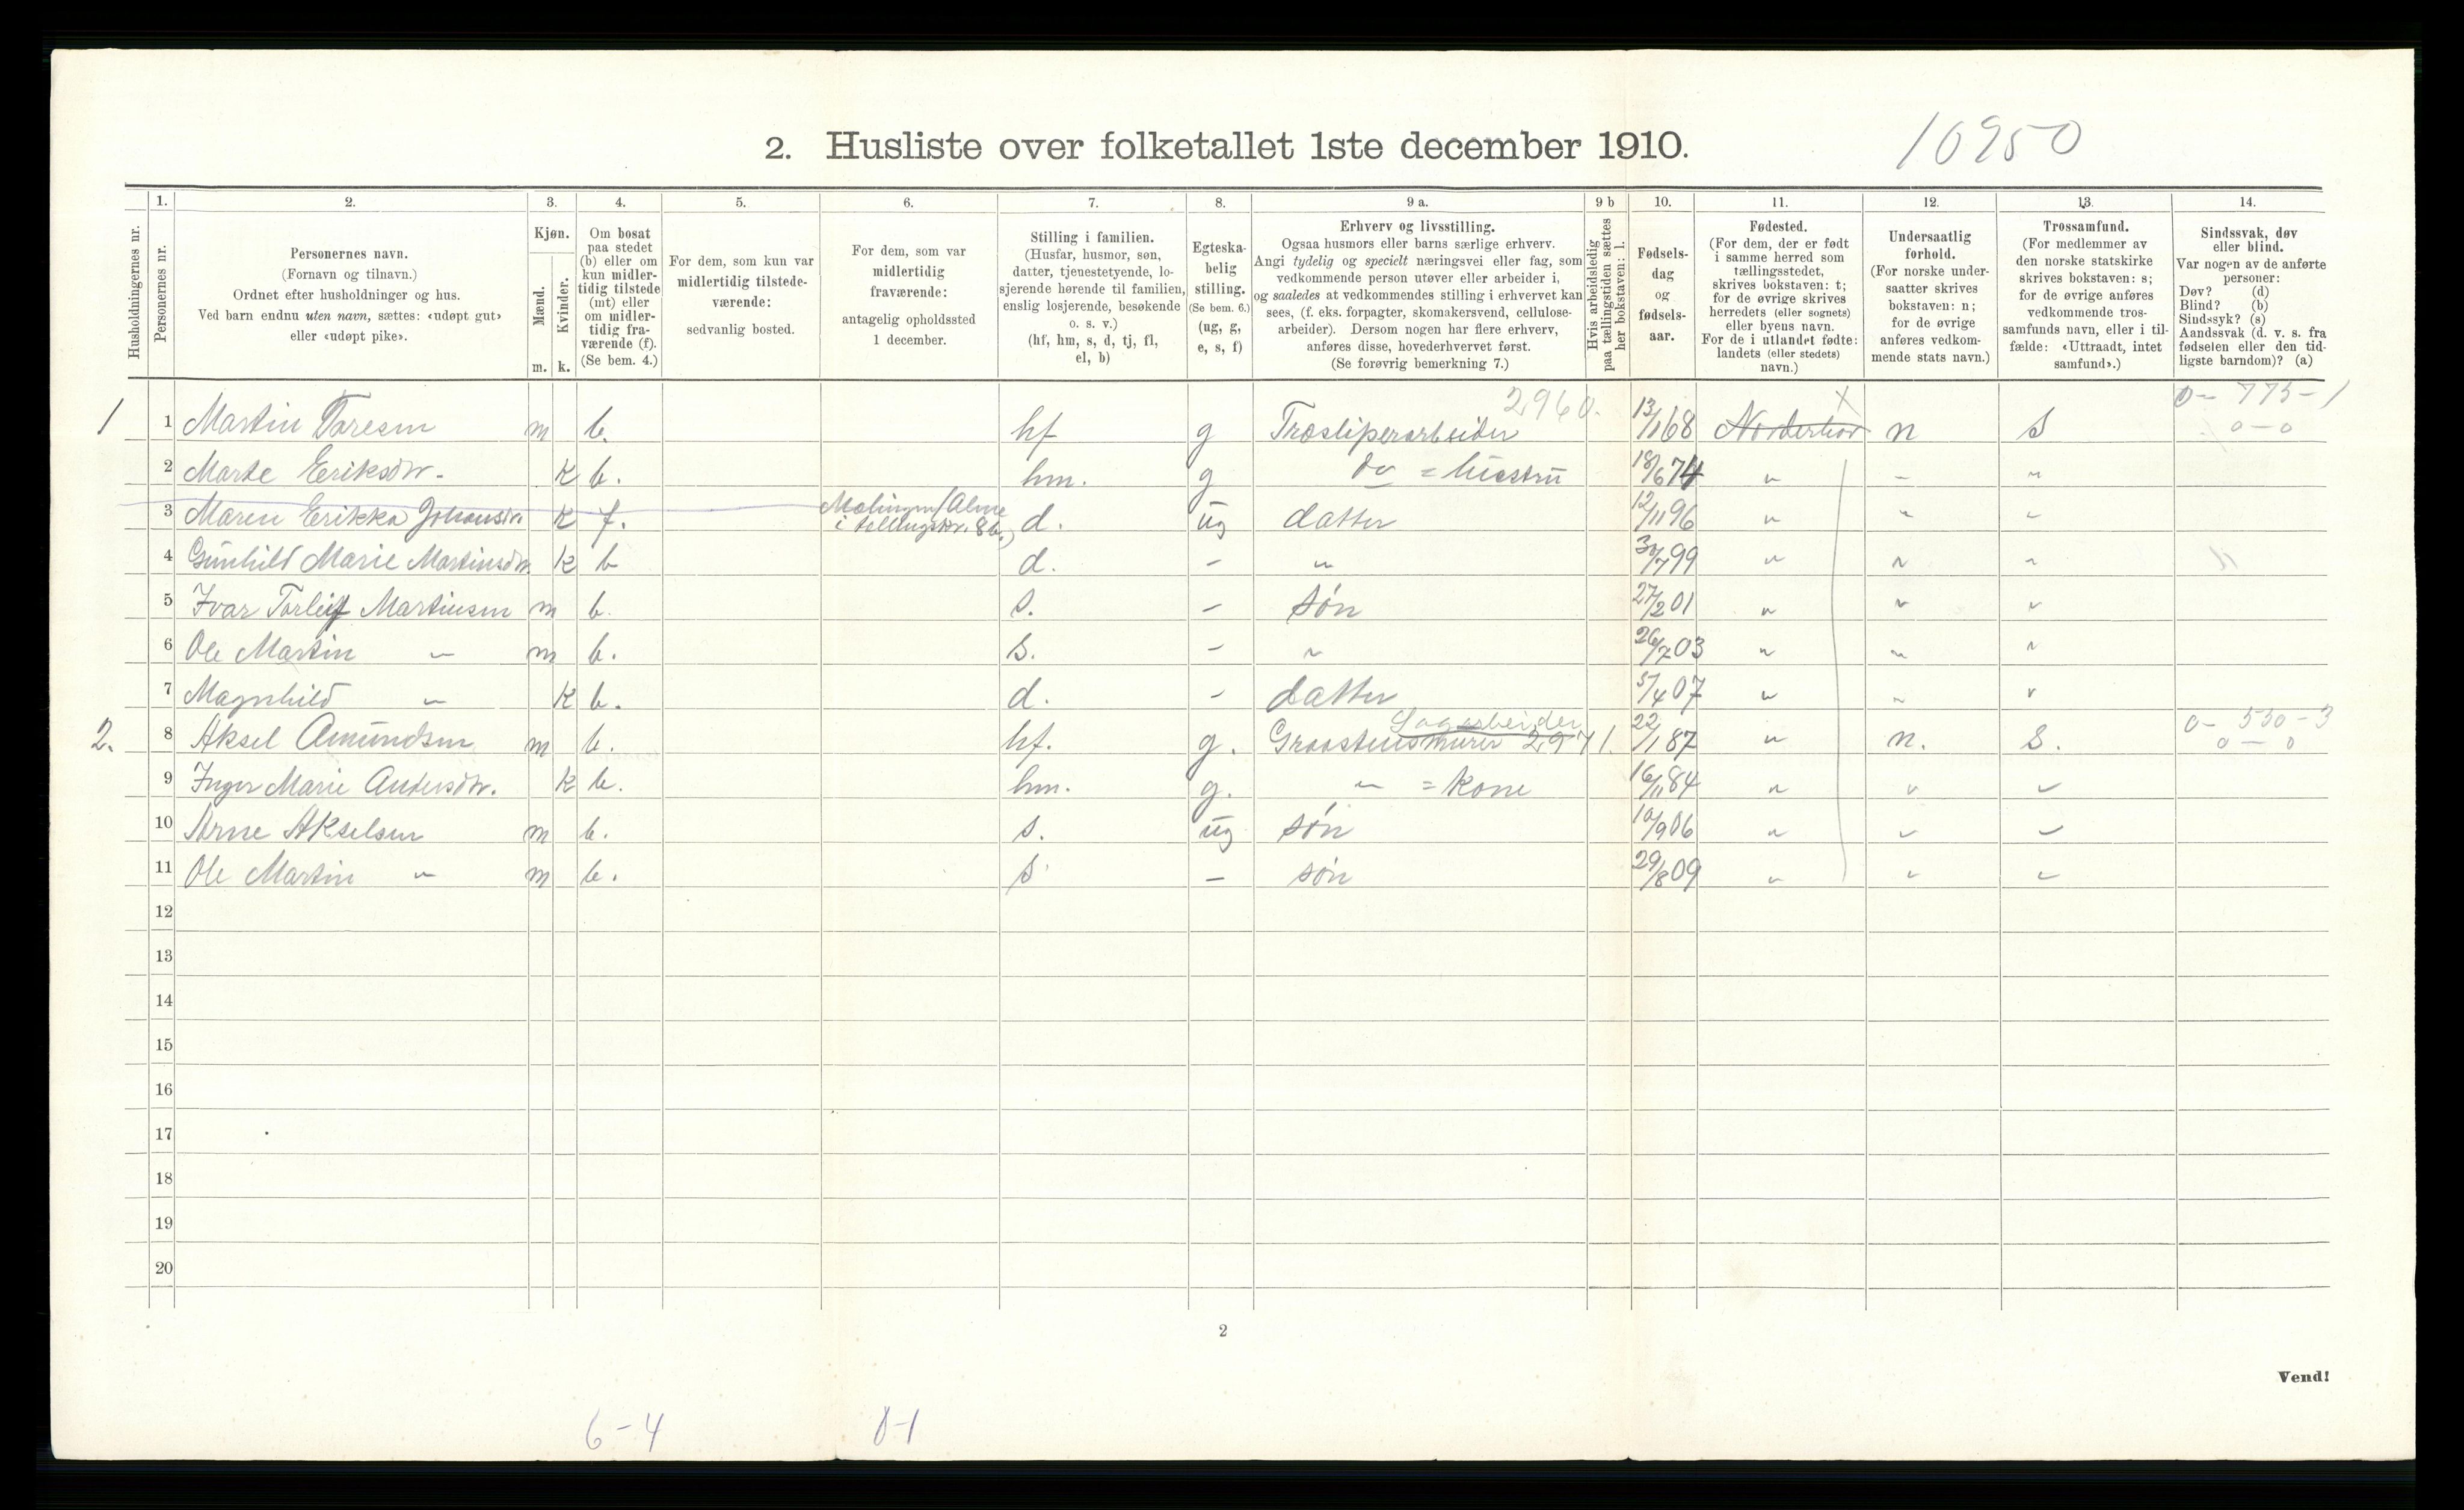 2. Husliste over folketallet 1ste december 1910.
10950
Husholdningernes nr.
1.
Personernes nr.
2.
Personernes navn.
(Fornavn og tilnavn.)
Ordnet efter husholdninger og hus.
Ved barn endnu uten navn, sættes: «udøpt gut»
eller «udøpt pike».
3.
Kjøn.
Mænd.
Kvinder.
m. k.
4.
Om bosat
paa stedet
(b) eller om
kun midler-
tidig tilstede
(mt) eller
om midler-
tidig fra-
værende (f).
(Se bem. 4.)
5.
For dem, som kun var
midlertidig tilstede-
værende:
sedvanlig bosted.
6.
For dem, som var
midlertidig
fraværende:
antagelig opholdssted
1 december.
7.
Stilling i familien.
(Husfar, husmor, søn,
datter, tjenestetyende, lo-
sjerende hørende til familien,
enslig losjerende, besøkende
o. s. v.)
(hf, hm, s, d, tj, fl,
el, b)
8.
Egteska-
belig
stilling.
(Se bem. 6.)
(ug, g,
e, s, f)
9 a.
Erhverv og livsstilling.
Ogsaa husmors eller barns særlige erhverv.
Angi tydelig og specielt næringsvei eller fag, som
vedkommende person utøver eller arbeider i,
og saaledes at vedkommendes stilling i erhvervet kan
sees, (f. eks. forpagter, skomakersvend, cellulose-
arbeider). Dersom nogen har flere erhverv,
anføres disse, hovederhvervet først.
(Se forøvrig bemerkning 7.)
9 b
Hvis arbeidsledig
paa tællingstiden sættes
her bokstaven: l.
10.
Fødsels-
dag
og
fødsels-
aar.
11.
Fødested.
(For dem, der er født
i samme herred som
tællingsstedet,
skrives bokstaven: t;
for de øvrige skrives
herredets (eller sognets)
eller byens navn.
For de i utlandet fødte:
landets (eller stedets)
navn.)
12.
Undersaatlig
forhold.
(For norske under-
saatter skrives
bokstaven: n;
for de øvrige
anføres vedkom-
mende stats navn.)
13.
Trossamfund.
(For medlemmer av
den norske statskirke
skrives bokstaven: s;
for de øvrige anføres
vedkommende tros-
samfunds navn, eller i til-
fælde: «Uttraadt, intet
samfund».)
14.
Sindssvak, døv
eller blind.
Var nogen av de anførte
personer:
Døv? (d)
Blind? (b)
Sindssyk? (s)
Aandssvak (d. v. s. fra
fødselen eller den tid-
ligste barndom)? (a)
2960. X 0 - 775 - 1
1 1 Martin Toresen m b. hf g Træsliperarbeider 13/1 68 Norderhov n S 0 - 0
2 Marte Eriksdtr. k b. hm. g do = hustru 18/6 74 " " "
3 Maren Erikka Johansdtr. k f. i tellingskr. 8 d. ug datter 12/11 96 " " "
4 Gunhild Marie Martinsdtr. k b d. - " 30/7 99 " " "
5 Ivar Torleif Martinsen m b. s. - søn 27/2 01 " " "
6 Ole Martin " m b. s. - " 26/7 03 " " "
7 Magnhild " k b. d. - datter 5/4 07 " " "
Sagarbeider 0 - 530 - 3
2. 8 Aksel Amundsen m b. hf. g. Graastensmurer 2971. 22/1 87 " n. S. 0 - 0
9 Inger Marie Andersdtr. k b. hm. g. " = kone 16/11 84 " " "
10 Arne Akselsen m b. s. ug søn 10/9 06 " " "
11 Ole Martin " m b. s - søn 29/8 09 " " "
12
13
14
15
16
17
18
19
20
2
Vend!
6-4 0-1